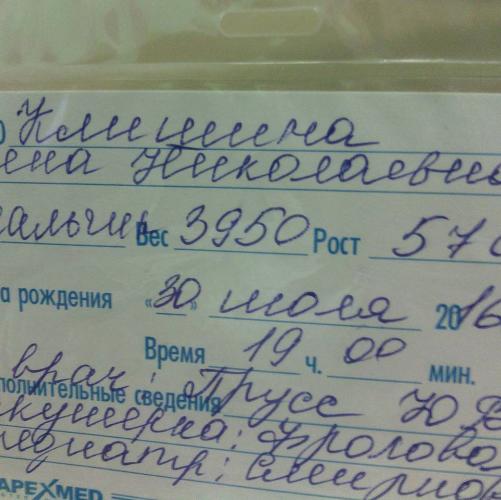 Клишина
ена Николаевн
альчик Вес 3950 Рост 57
а рождения «30» июля 2016
Время 19 ч. 00 мин.
врач: Прусс Ю
полнительные сведения
кушерка: Фролова
едиатр: Смирно
APEXMED